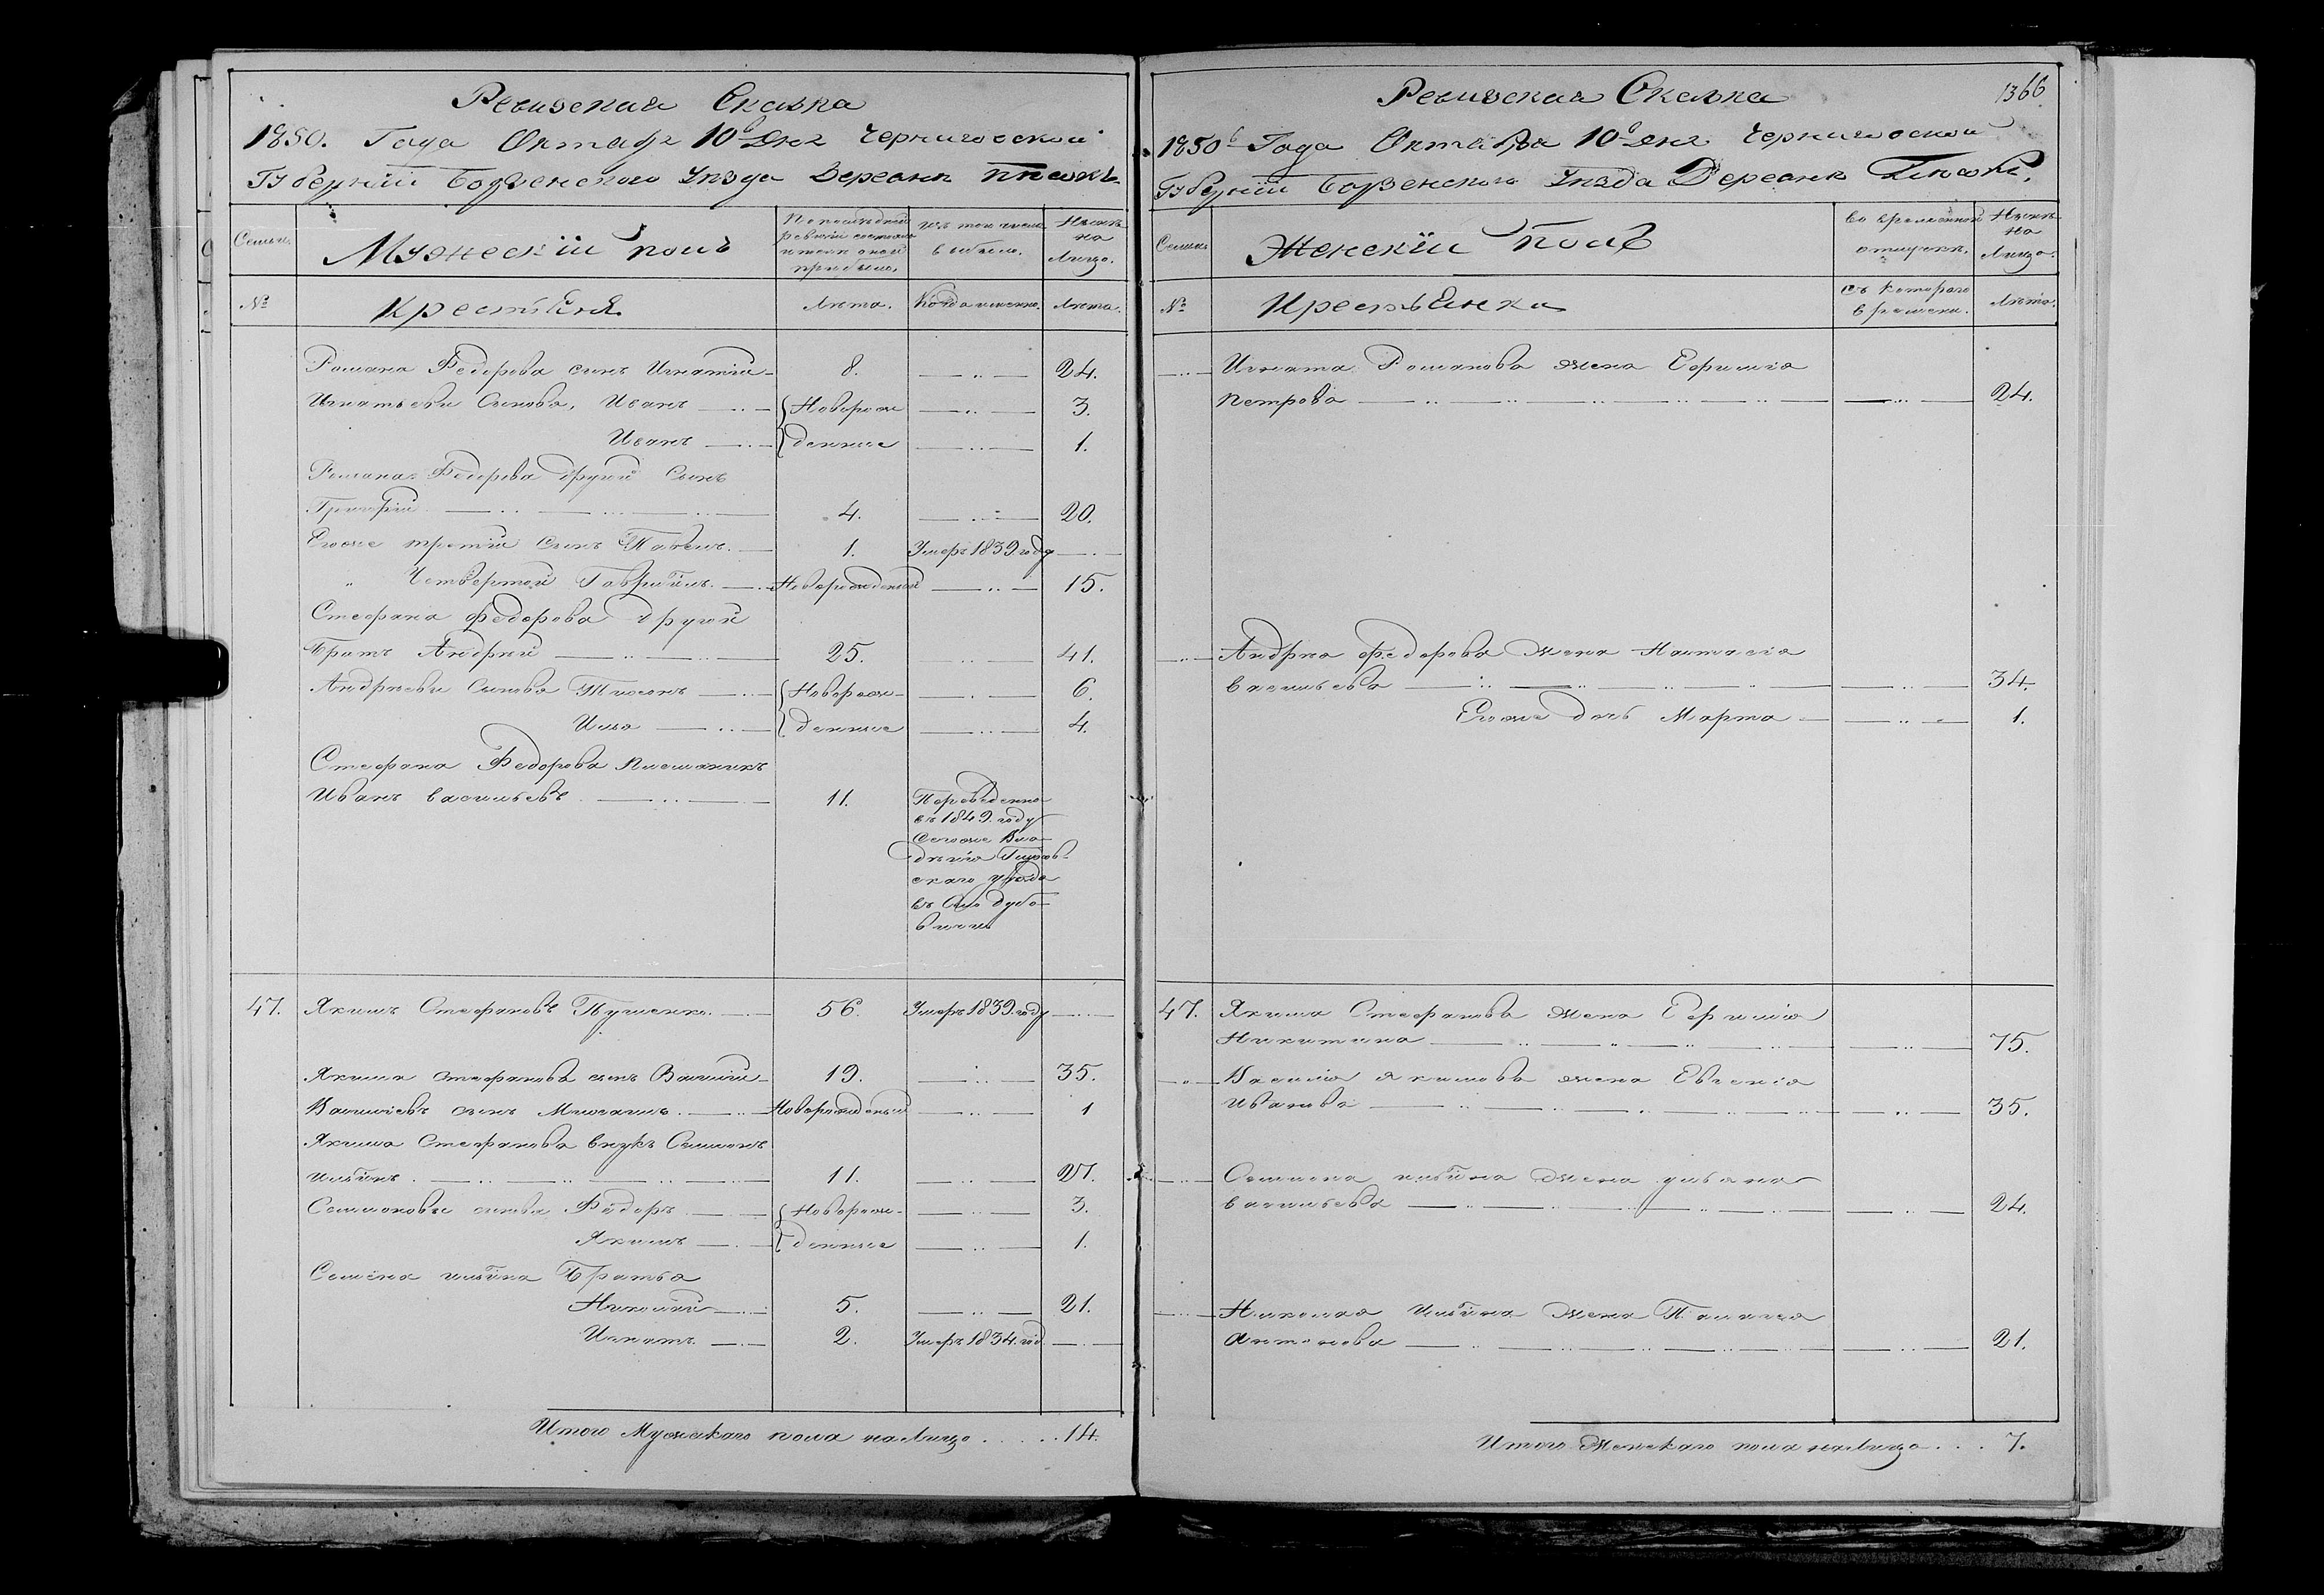 Ревизская Сказка
1850. Года Октября 10 дня Черниговской
Губерніи Борзенского Уезда Деревни Пѣсокъ
Семьи
Мужескій полъ
По последней
ревизіи состояло
и после оной
прибыло.
Изъ того числа
выбыло.
Нынѣ
на
Лицо.
№
Крестьяня
Лѣта.
Когда именно.
Лѣта.
Романа Федорова сынъ Игнатій 8. 24.
Игнатьевы Сыновья, Иванъ Новорож 3.
Иванъ денные 1.
Романа Федорова другой Сынъ
Григорій 4. 20.
Егоже третій сынъ Павелъ. 1. Умеръ 1839. году
" Четвертой Гаврійлъ. Новорожденный 15.
Стефана Федорова другой
Братъ Андрѣй 25. 41.
Андрѣевы Сыновья Тихонъ Новорож- 6.
Илья денные 4.
Стефана Федорова племяникъ
Иванъ Васильевъ 11. Переведенно
въ 1849. году
сегоже Вла-
дѣнія
скаго уѣзда
въ Село Дубо-
47. Якимъ Стефановъ 56. Умеръ 1839. году
Якима Стефанова сынъ Василій 19. 35.
Васильевъ сынъ Михаилъ. Новорожденый 1
Якима Стефанова внукъ Семионъ
Ильинъ. 11. 27.
Семионовы сыновья Федоръ Новорож- 3.
Якимъ денные 1.
Семена Ильина Братья
Николай 5. 21.
Игнатъ. 2. Умеръ 1834. год
Итого Мужескаго пола налицо ..... 14.
Ревизская Сказка 1366
1850 Года Октября 10 дня Черниговской
Губерніи Борзенского Уезда Деревни Пѣсокъ.
Семьи
Женскій полъ
Во временной
отлучки.
Нынѣ
на
Лицо.
№
Крестьянки
Съ Котораго
времени.
Лѣта.
Игната Романова жена Ефимія
Петрова 24.
Андрея Федорова жена Настасія
Васильева 34.
Егоже дочь Марфа 1.
47. Якима Стефанова жена Ефимія
Никитина 75.
Василія Якимова жена Евгенія
Иванова 35.
Семиона Ильина жена Ульяна
Васильева 24.
Николая Ильина жена Палагея
Антонова 21.
Итого Женскаго пола налицо ... 7.